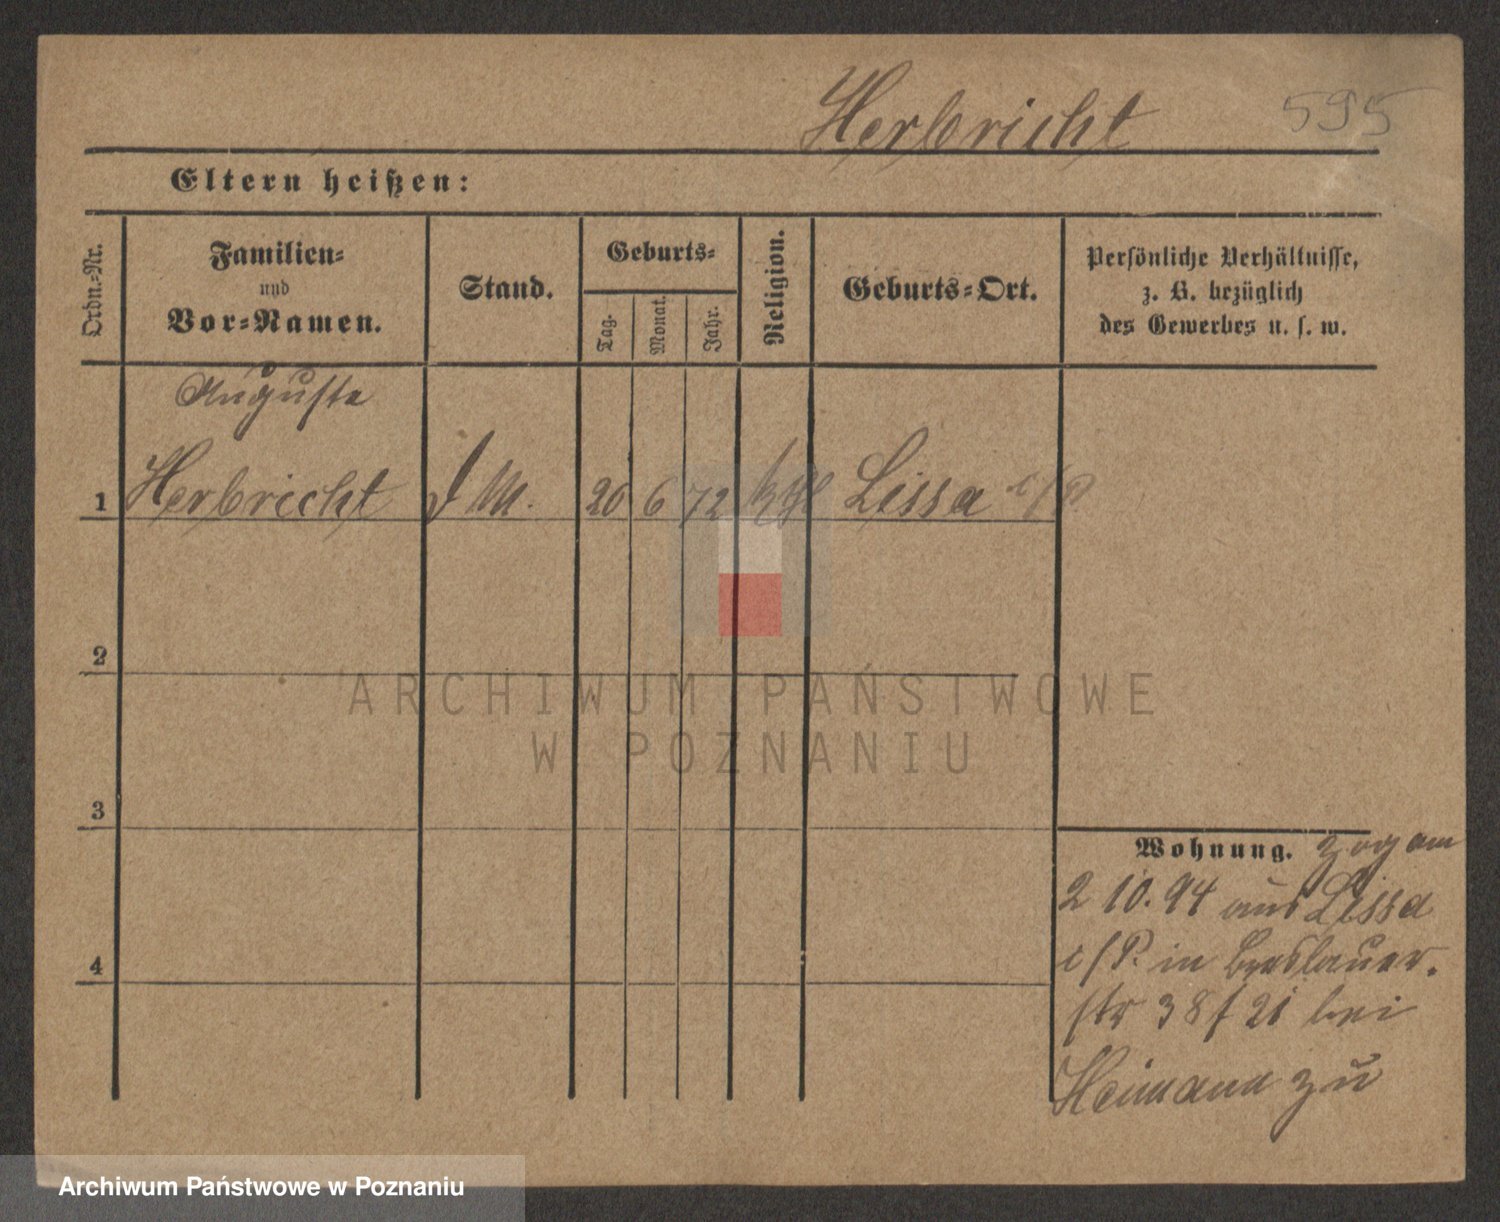 Herbricht 595
Eltern heißen:
Ordn.-Nr.
Familien-
und
Vor-Namen.
Stand.
Geburts-
Tag.
Monat.
Jahr.
Religion.
Geburts-Ort.
Persönliche Verhältnisse,
z. B. bezüglich
des Gewerbes u. s. w.
Auguste
1 Herbricht D M. 20 6 72 kth Lissa i/P
2
3
4
Wohnung. Zog am
2 10. 94 aus Lissa
i/P. in Breslauer-
str 38 / 21 bei
Heimann zu
ARCHIWUM PAŃSTWOWE
W POZNANIU
Archiwum Państwowe w Poznaniu